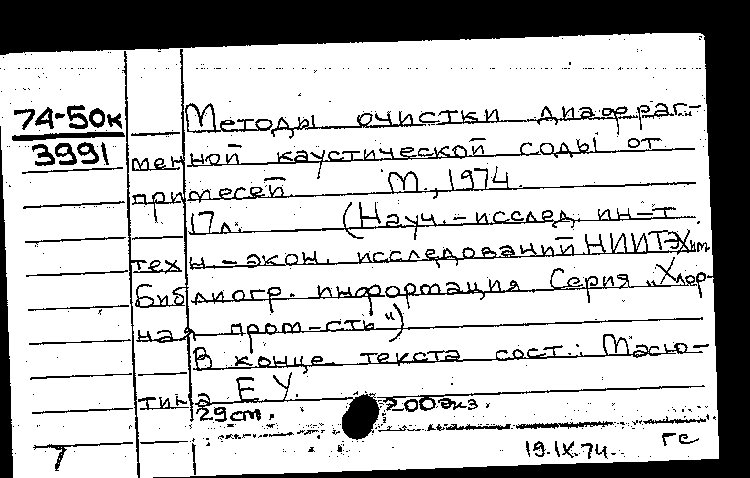 74-50к
3991
Методы очистки диафраг-
менной каустической соды от
примесей М., 1974.
17л. (Науч.-исслед. ин-т
техн-экон. исследований НИИТЭХим.
Библиогр. информация. Серия „Хлор-
ная пром-сть")
В конце текста сост.: Масю-
тина Е.У.
29 ст. 200 экз.
7 19.IX.74. ГС